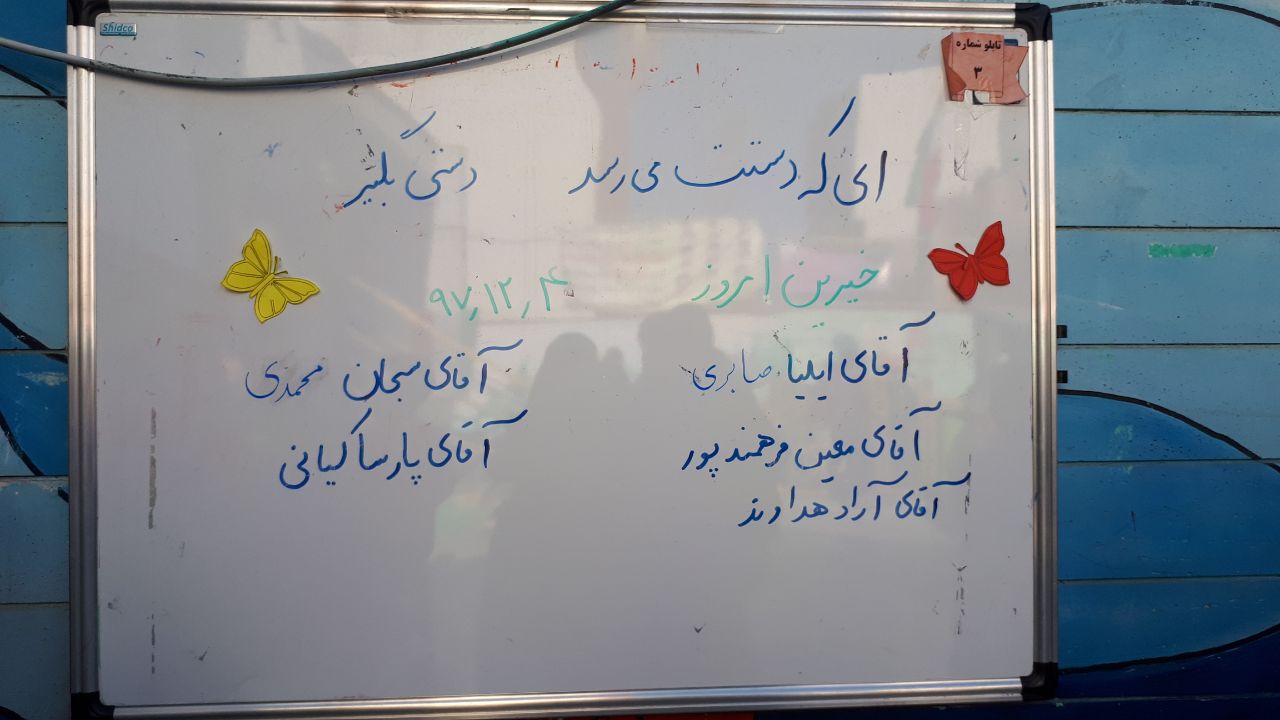 Shidco
تابلو شماره
۳
ای که دستت می رسد دستی بگیر
خیرین امروز ۹۷,۱۲,۴
آقای ایلیا صابری آقای سبحان محمدی
آقای معین فرهمند پور آقای پارسا کیانی
آقای آراد هداوند